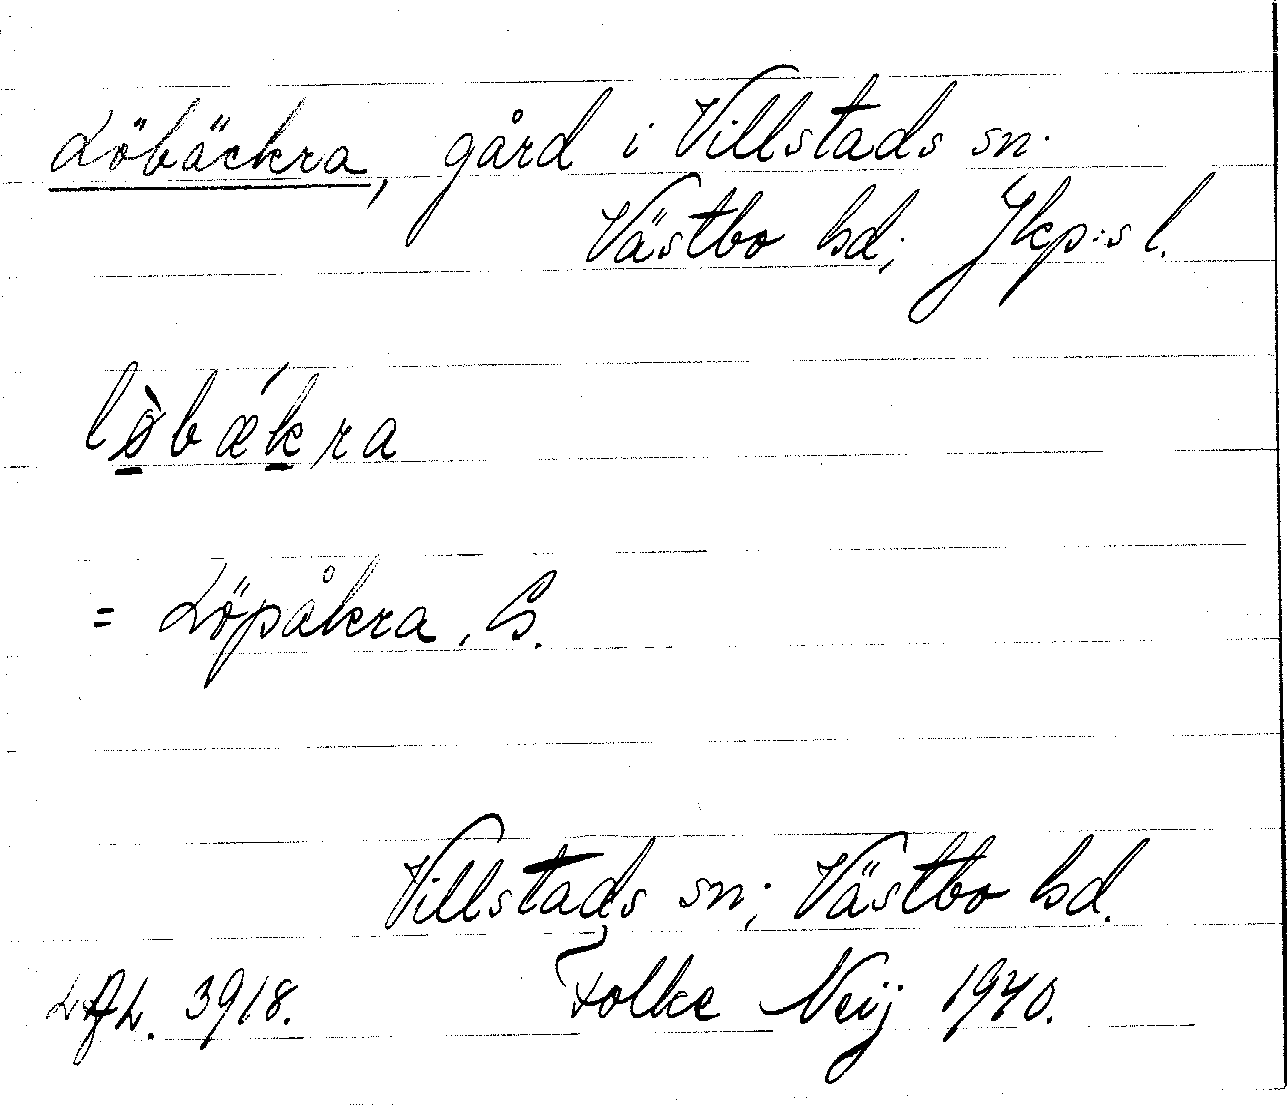 Löbäckra, gård i Villstads sn.
Västbo hd; Jkp:s l.
lø̀bǽkra
= Löpåkra, G.
Villstads sn; Västbo hd.
3918. Folke Neij 1940.